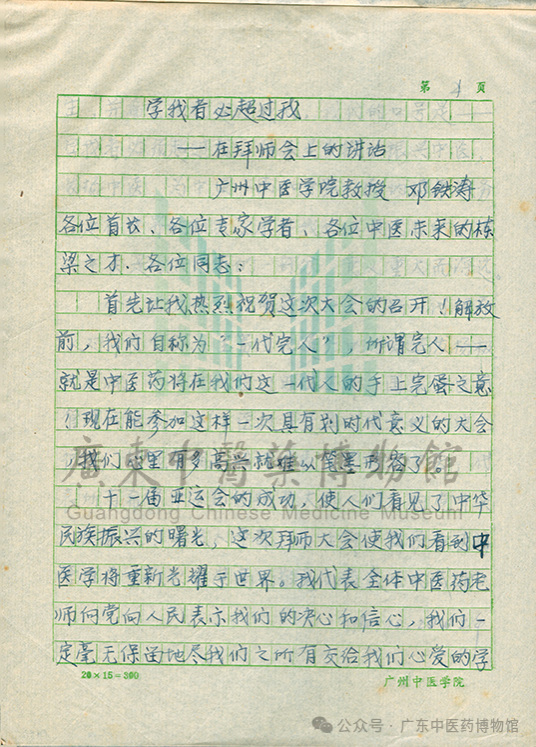 第 1 页
学我者必超过我
——在拜师会上的讲话
广州中医学院教授 邓铁涛
各位首长、各位专家学者、各位中医未来的栋
梁之才、各位同志:
首先让我热烈祝贺这次大会的召开!解放
前,我们自称为“一代完人”,所谓完人——
就是中医药将在我们这一代人的手上完蛋之意
!现在能参加这样一次具有划时代意义的大会
,我们心里有多高兴就难以笔墨形容了。
十一届亚运会的成功,使人们看见了中华
民族振兴的曙光,这次拜师大会使我们看到中
医学将重新光耀于世界。我代表全体中医药老
师向党向人民表示我们的决心和信心,我们一
定毫无保留地尽我们之所有交给我们心爱的学
20×15=300
广州中医学院
廣東中醫藥博物館
Guangdong Chinese Medicine Museum
公众号·广东中医药博物馆